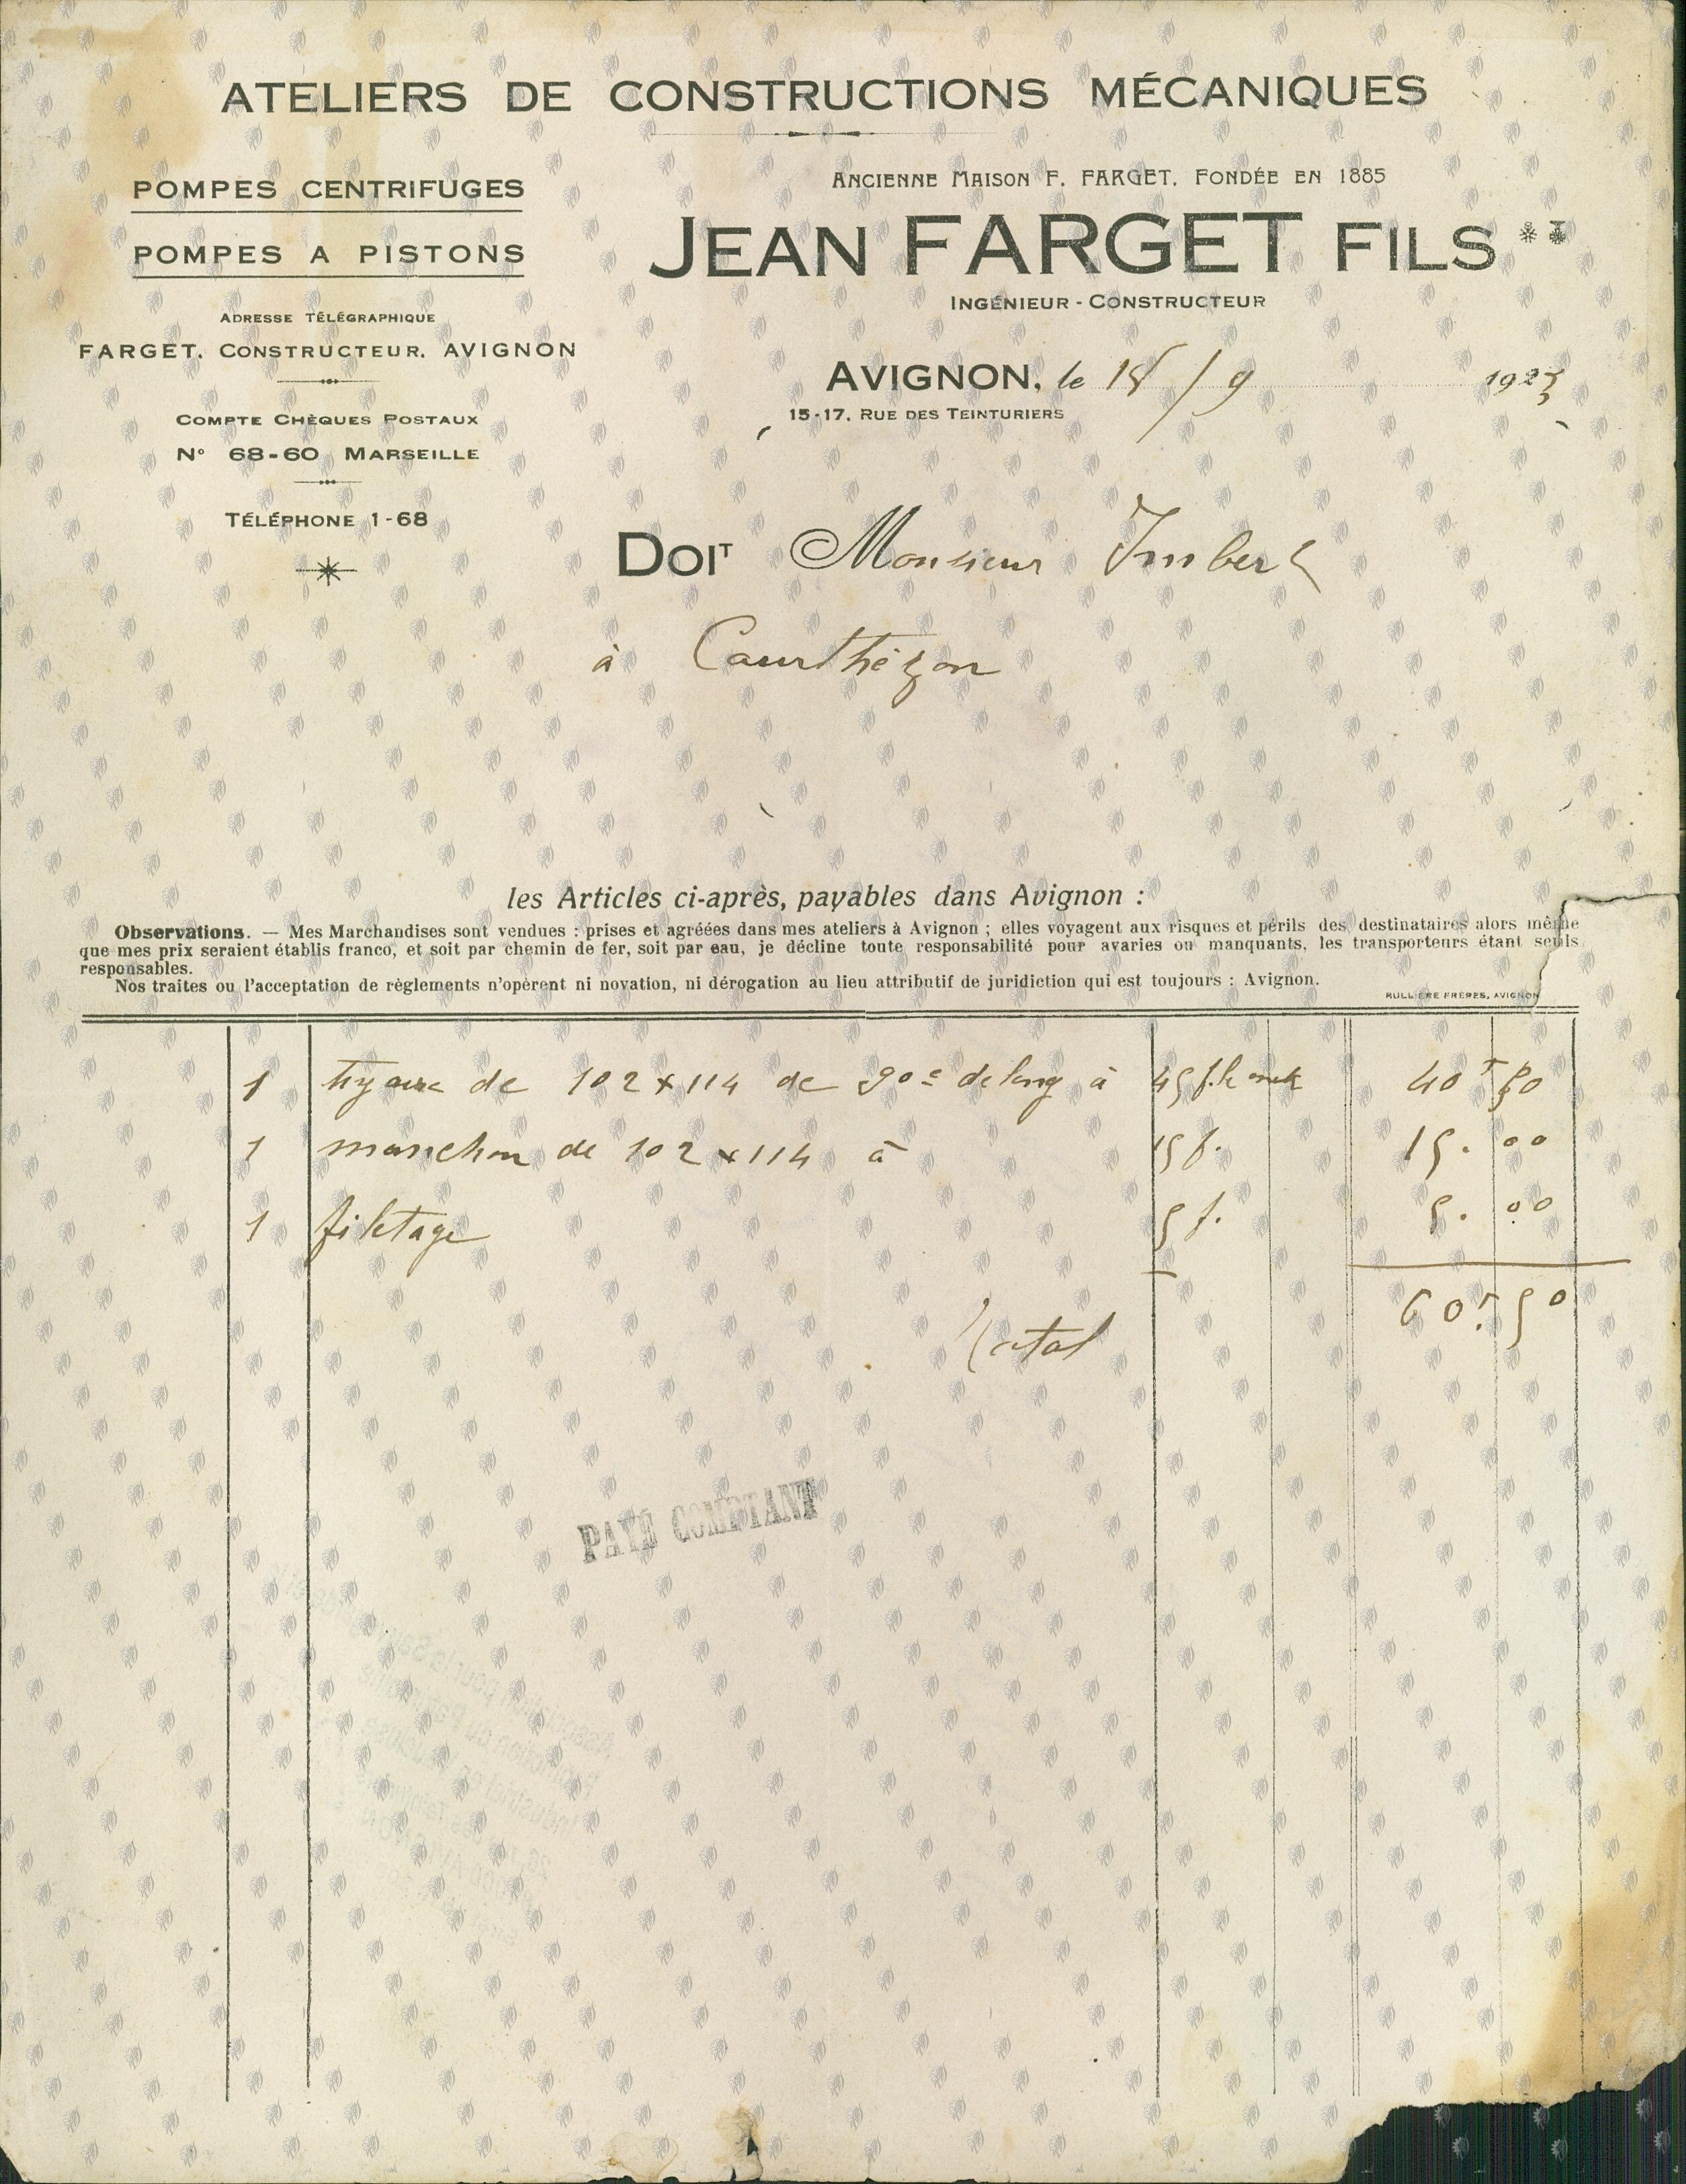 ATELIERS DE CONSTRUCTIONS MÉCANIQUES
POMPES CENTRIFUGES
POMPES A PISTONS
ADRESSE TÉLÉGRAPHIQUE
FARGET. CONSTRUCTEUR. AVIGNON
COMPTE CHÈQUES POSTAUX
N° 68-60 MARSEILLE
TÉLÉPHONE 1-68
ANCIENNE MAISON F. FARGET. FONDÉE EN 1885
JEAN FARGET FILS
INGÉNIEUR - CONSTRUCTEUR
AVIGNON, le 18/9 1923
15-17, RUE DES TEINTURIERS
DOIT Monsieur Imbert
à Courthézon
les Articles ci-après, payables dans Avignon :
Observations. — Mes Marchandises sont vendues : prises et agréées dans mes ateliers à Avignon ; elles voyagent aux risques et périls des destinataires alors même
que mes prix seraient établis franco, et soit par chemin de fer, soit par eau, je décline toute responsabilité pour avaries ou manquants, les transporteurs étant seuls
responsables.
Nos traites ou l'acceptation de règlements n'opèrent ni novation, ni dérogation au lieu attributif de juridiction qui est toujours : Avignon.
RULLIÈRE FRÈRES, AVIGNON
1 tuyau de 102 x 114 de 90c de long à 45 f. le 40f 50
1 manchon de 102 x 114 à 15 f. 15. 00
1 filetage 5 f. 5. 00
Total 60f 50
PAYÉ COMPTANT